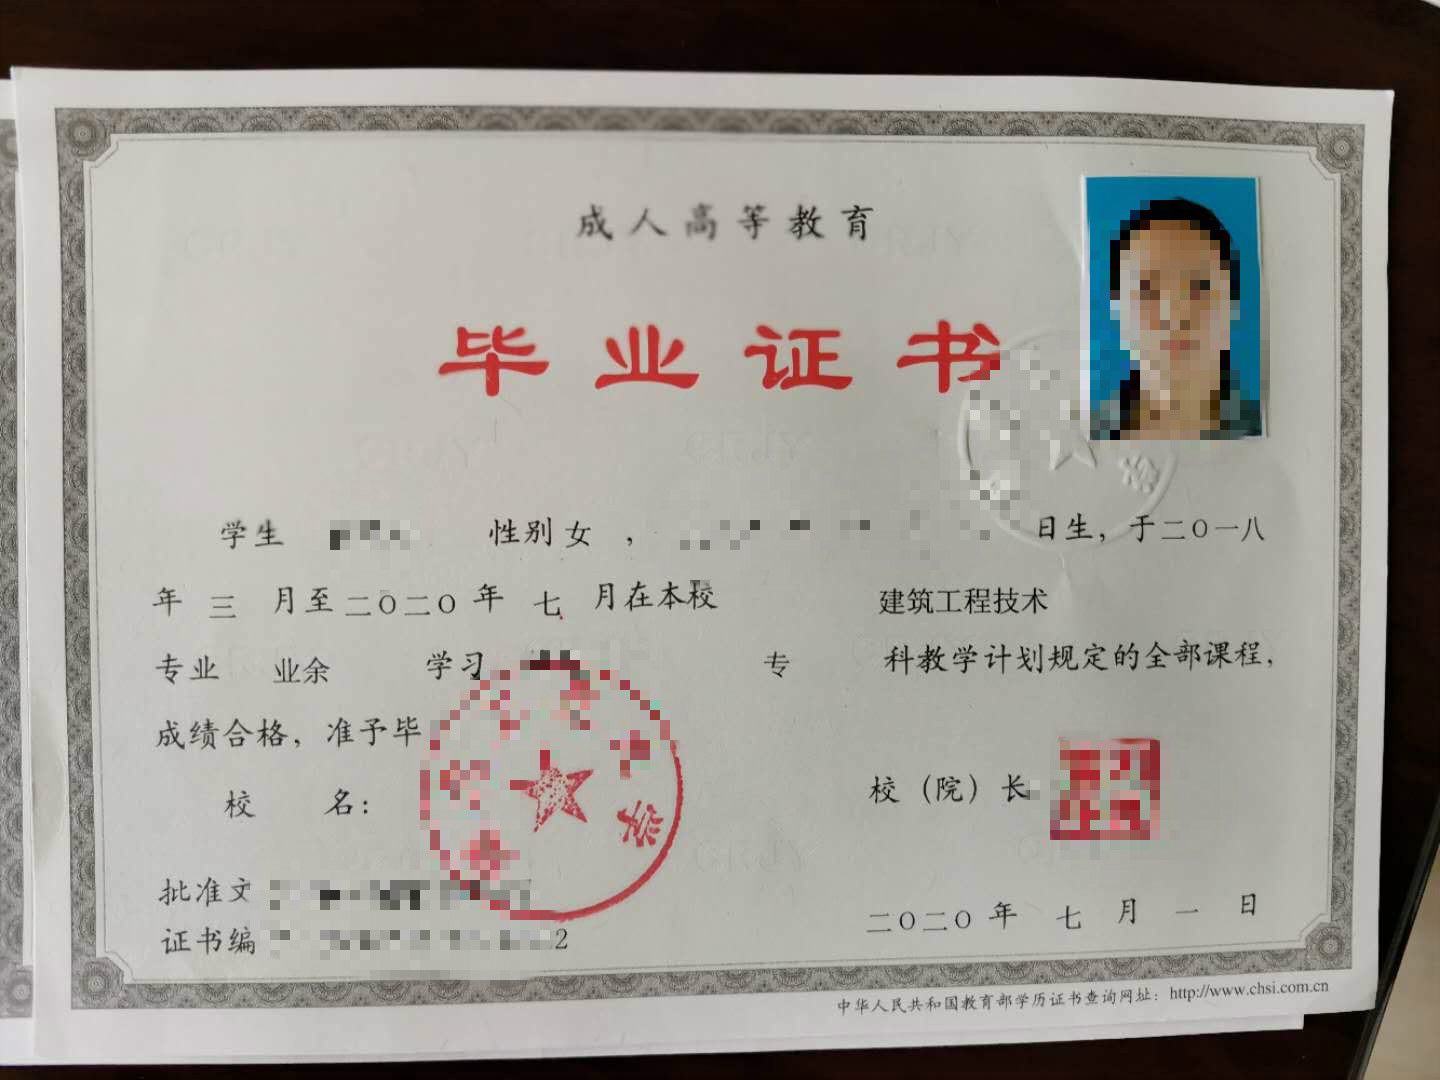 成人高等教育
毕业证书
学生 性别 女 ， 日生，于二〇一八
年 三 月至 二〇二〇 年 七 月在本校 建筑工程技术
专业 业余 学习 专 科教学计划规定的全部课程，
成绩合格，准予毕
校 名： 校（院）长
批准文
证书编 2
二〇二〇 年 七 月 一 日
中华人民共和国教育部学历证书查询网址：http://www.chsi.com.cn